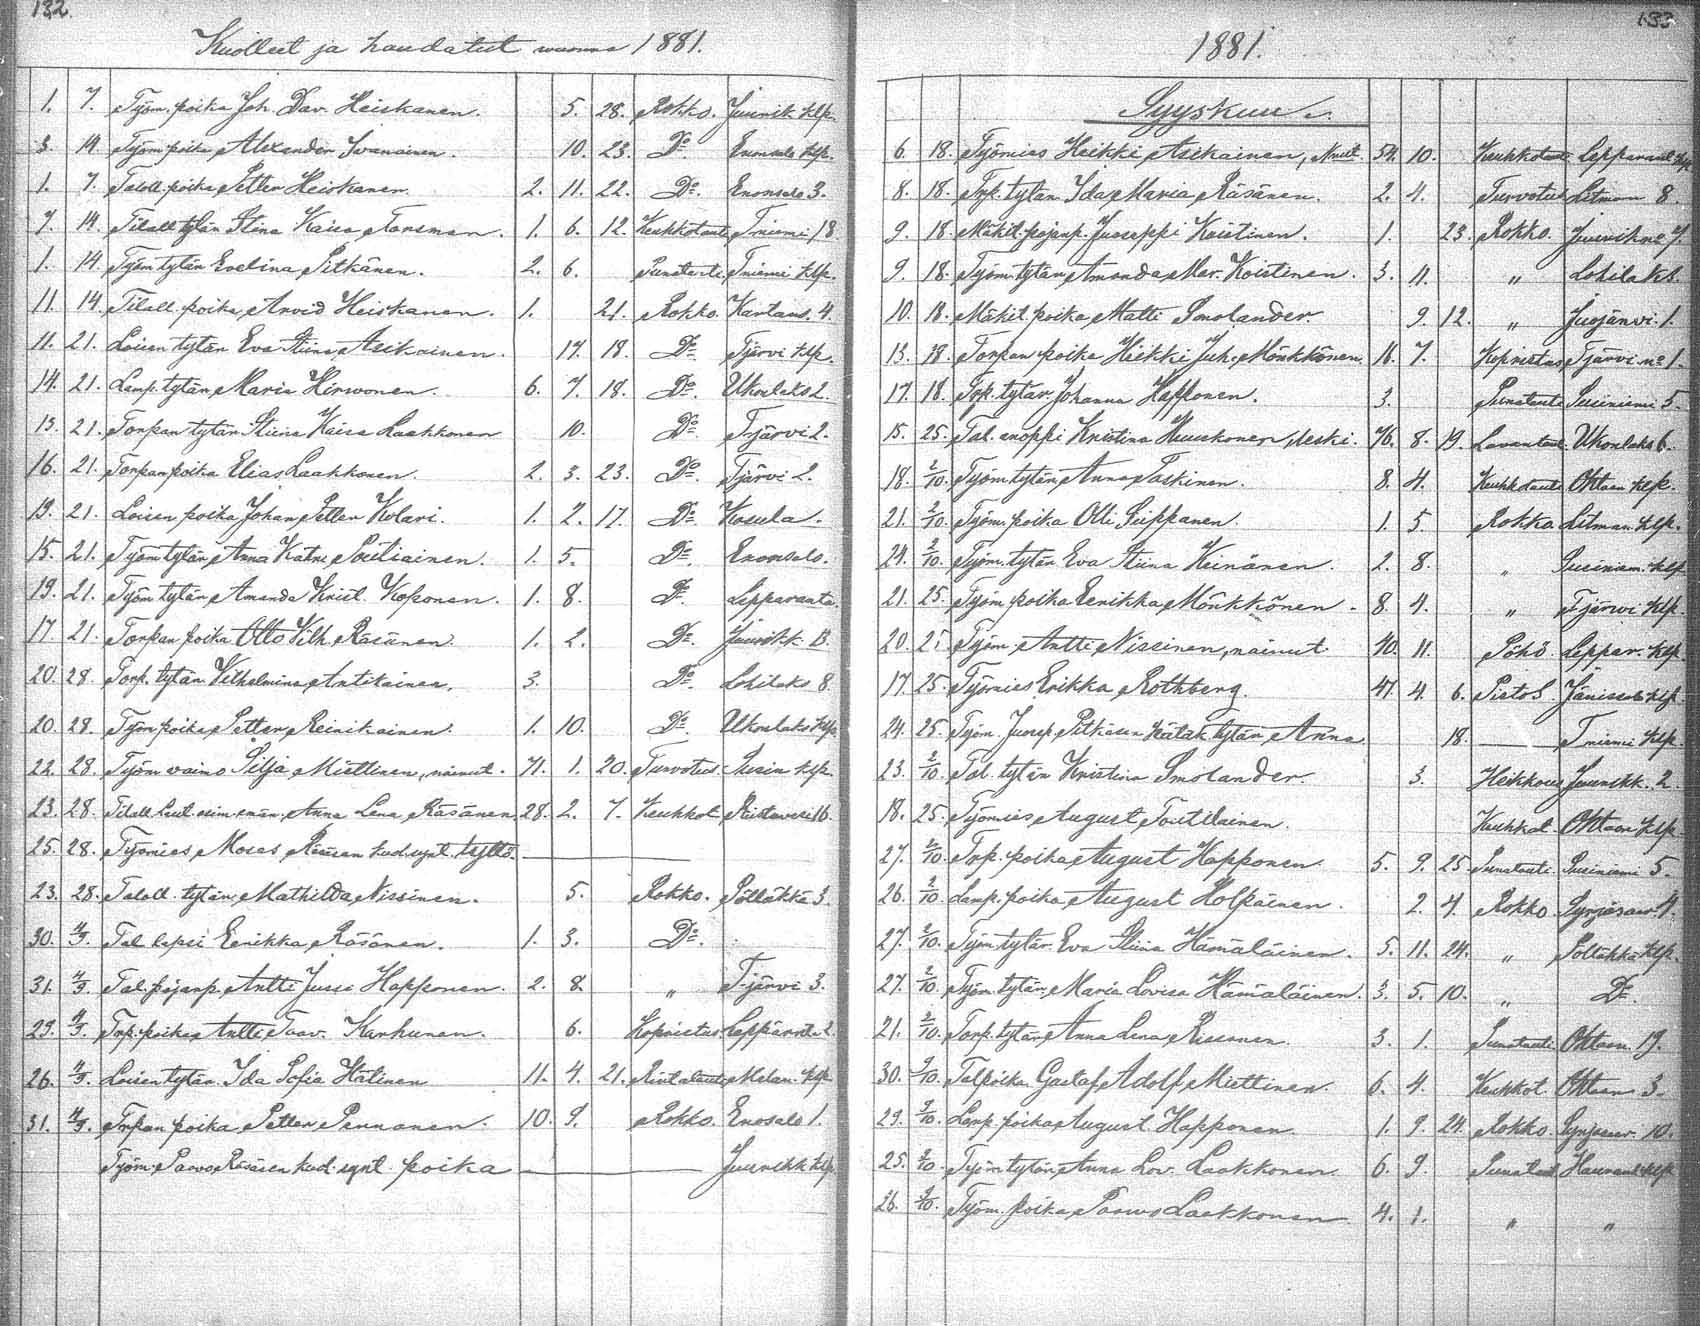 132.
Kuolleet ja haudatut vuonna 1881.
1. 7. Työm. poika Joh. Dav. Heiskanen. 5. 28. Rokko. Juurik. klp.
3. 14. Työm. poika Alexander Ivanainen. 10. 23. Do. Enonsalo klp.
1. 7. Taloll. poika Petter Heiskanen. 2. 11. 22. Do. Enonsalo 3.
7. 14. Tilall. tytär Stina Kaisa Forsman. 1. 6. 12. Keuhkotauti Tniemi 18
1. 14. Työm. tytär Evelina Pitkänen. 2. 6. Punatauti. Tniemi klp.
11. 14. Tilall. poika Arvid Heiskanen. 1. 21. Rokko. Kartans. 4.
11. 21. Loisen tytär Eva Stina Asikainen. 17. 18. Do. Tjärvi klp.
14. 21. Lamp. tytär Maria Hirwonen. 6. 7. 18. Do. Ukonlaks 2.
13. 21. Torpan tytär Stiina Kaisa Laakkonen 10. Do. Tjärvi 2.
16. 21. Torpan poika Elias Laakkonen. 2. 3. 23. Do. Tjärvi 2.
19. 21. Loisen poika Johan Petter Kolari. 1. 2. 17. Do. Kosula.
15. 21. Työm. tytär Anna Katri Poutiainen. 1. 5. Do. Enonsalo.
19. 21. Työm. tytär Amanda Krist. Koponen. 1. 8. Do. Lepparanta.
17. 21. Torpan poika Otto Vilh. Räsänen. 1. 2. Do. Juurikk. 13.
20. 28. Torp. tytär Vilhelmina Antikainen. 3. Do. Lohilaks 8
20. 28. Työm. poika Petter Reinikainen. 1. 10. Do. Ukonlaks klp.
22. 28. Työm. vaimo Silja Miettinen, nainut. 71. 1. 20. Turvotus. Susin. klp.
23. 28. Tilall. Anna Lena Räsänen. 28. 2. 7. Keuhkot. Ristavesi 16.
25. 28. Työmies Moses Räsäsen kuol. synt. tyttö.
23. 28. Taloll. tytär Mathilda Nissinen. 5. Rokko. Pölläkkä 3.
30. 4/9. Tal. lapsi Eerikka Räsänen. 1. 3. Do.
31. 4/9. Tal. pojanp. Antti Jussi Happonen. 2. 8. „ Tjärvi 3.
29. 4/9. Trp. poika Antti Taav. Karhunen. 6. Kopristus Leppärnt. 2.
26. 4/9. Loisen tytär Ida Sofia Hälinen 11. 4. 21. Rintatauti Melan. klp.
31. 4/9. Trpan poika Petter Pennanen. 10. 9. Rokko. Enosalo 1.
Työm. Paavo Räsäsen kuol. synt. poika Juurikk. klp.
133
1881.
Syyskuu.
6. 18. Työmies Heikki Asikainen, Nait. 54. 10. Keuhkotaut. Lepparant. klp.
8. 18. Trp. tytär Ida Maria Räsänen. 2. 4. Turvotus Litman 8.
9. 18. Mäkit. pojanp. Juoseppi Koistinen. 1. 23. Rokko. Juurikk no 7.
9. 18. Työm. tytär Amanda Mar. Koistinen. 3. 11. „ Lohilaks.
10. 18. Mäkit. poika Matti Smolander. 9. 12. „ Juojärvi 1.
13. 18. Torpan poika Heikki Juh. Mönkkönen. 16. 7. Kopristus Tjärvi no 1.
17. 18. Trp. tytär Johanna Happonen. 3. Punatauti Susiniemi 5.
15. 25. Tal. anoppi Kristina Huuskonen, leski. 76. 8. 19. Lavantaut. Ukonlaks 6.
18. 2/10. Työm. tytär Anna Taskinen. 8. 4. Keuhkotauti Ohtaan klp.
21. 2/10. Työm. poika Olli Suppanen. 1. 5 Rokko Litman. klp.
24. 2/10. Työm. tytär Eva Stiina Keinänen. 2. 8. „ Susiniem. klp
21. 25. Työm. poika Eerikka Mönkkönen. 8. 4. „ Tjärvi klp.
20. 25. Työm. Antti Nissinen, nainut. 40. 11. Pöhö. Leppär. klp.
17. 25. Työmies Erikka Rothberg. 41. 4. 6. Pistos. Jänissalo klp.
24. 25. Työm. Juosep Pitkäsen tytär Anna 18. Tniemi klp.
23. 2/10. Tal. tytär Kristina Smolander. 3. Heikkous Juurikk. 2.
18. 25. Työmies August Toutilainen. Keuhkot. Ohtaan klp.
27. 2/10. Trp. poika August Happonen. 5. 9. 25 Punatauti. Susiniemi 5.
26. 2/10. Lamp. poika August Holpainen. 2. 4. Rokko. Syrjäsaar 4.
27. 2/10. Työm. tytär Eva Stiina Hämäläinen. 5. 11. 24. „ Pölläkkä klp.
27. 2/10. Työm. tytär Maria Lovisa Hämäläinen. 3. 5. 10. „ Do.
21. 2/10. Torp. tytär Anna Lena Rissanen. 3. 1. Punatauti Ohtaan 19.
30. 9/10. Tal poika Gustaf Adolf Miettinen. 6. 4. Keuhkot. Ohtaan 3.
29. 9/10. Lamp. poika August Happonen. 1. 9. 24. Rokko. Syrjäsaar. 10.
25. 9/10. Työm. tytär Anna Lov. Laakkonen. 6. 9. Punataut. Hauvant. klp.
26. 9/10. Työm. poika Paavo Laakkonen 4. 1. „ „